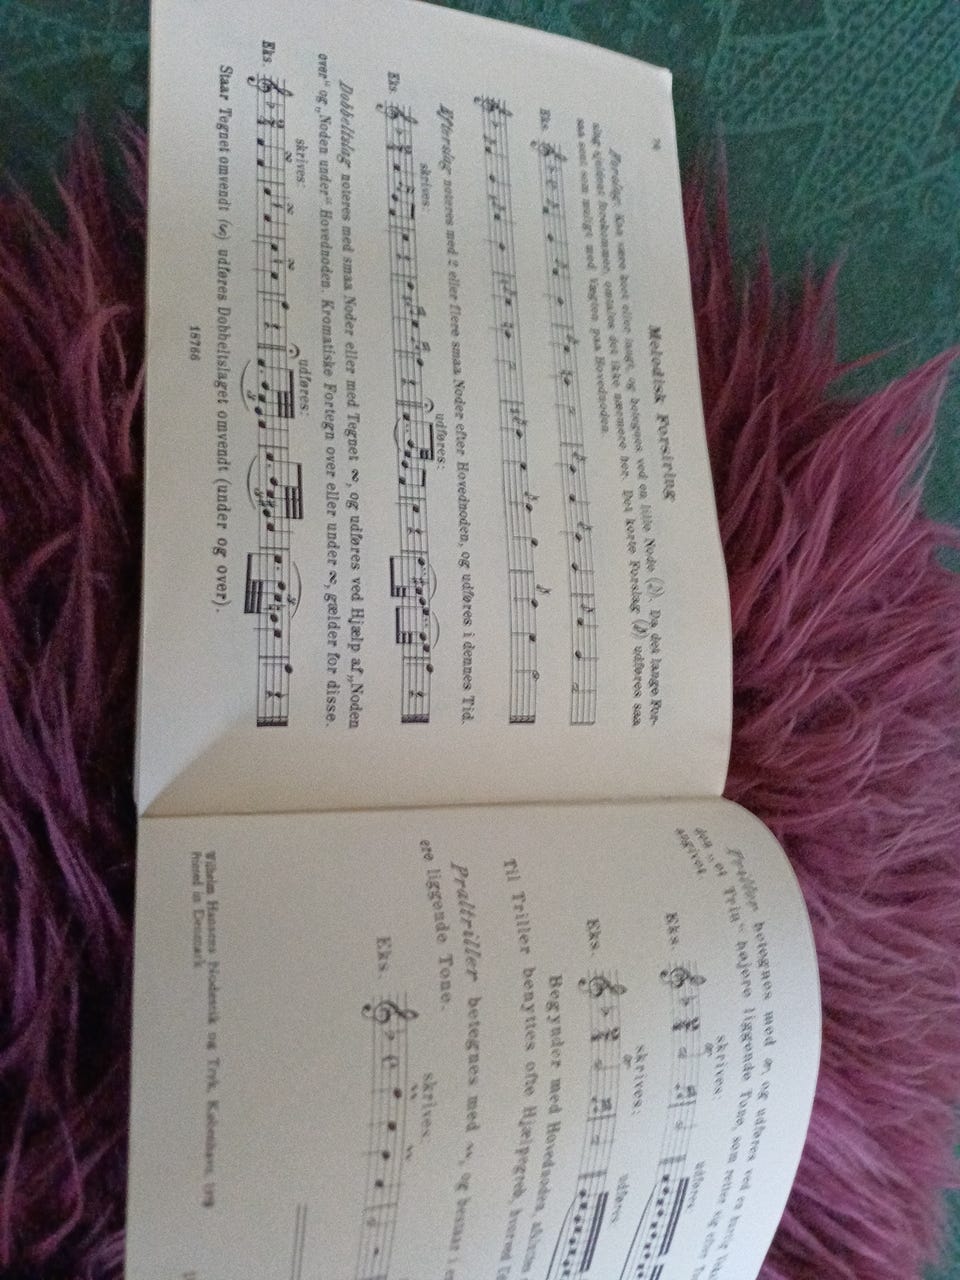 Melodisk Forsiring
Forslag kan være kort eller langt, og betegnes ved en lille Node (♪). Da det lange For-
slag sjældent forekommer, omtales det ikke nærmere her. Det korte Forslag (♪) udføres saa
saa som muligt med Vægten paa Hovednoden.
Eks.
Efterslag noteres med 2 eller flere smaa Noder efter Hovednoden, og udføres i dennes Tid.
skrives: udføres:
Eks.
Dobbeltslag noteres med smaa Noder eller med Tegnet ∾, og udføres ved Hjælp af „Noden
over“ og „Noden under“ Hovednoden. Kromatiske Fortegn over eller under ∾, gælder for disse.
skrives: udføres:
Eks.
Staar Tegnet omvendt (∾) udføres Dobbeltslaget omvendt (under og over).
18766
Triller betegnes med og udføres ved en hurtig
den „et Trin“ højere liggende Tone, som retter sig efter
angivet
skrives: udføres:
Eks.
skrives: udføres:
Eks.
Begynder med Hovednoden,
Til Triller benyttes ofte Hjælpegreb, hvorved
Pralltriller betegnes med, og bestaar i
ere liggende Tone.
skrives:
Eks.
Wilhelm Hansens Nodestik og Tryk, København
Printed in Denmark